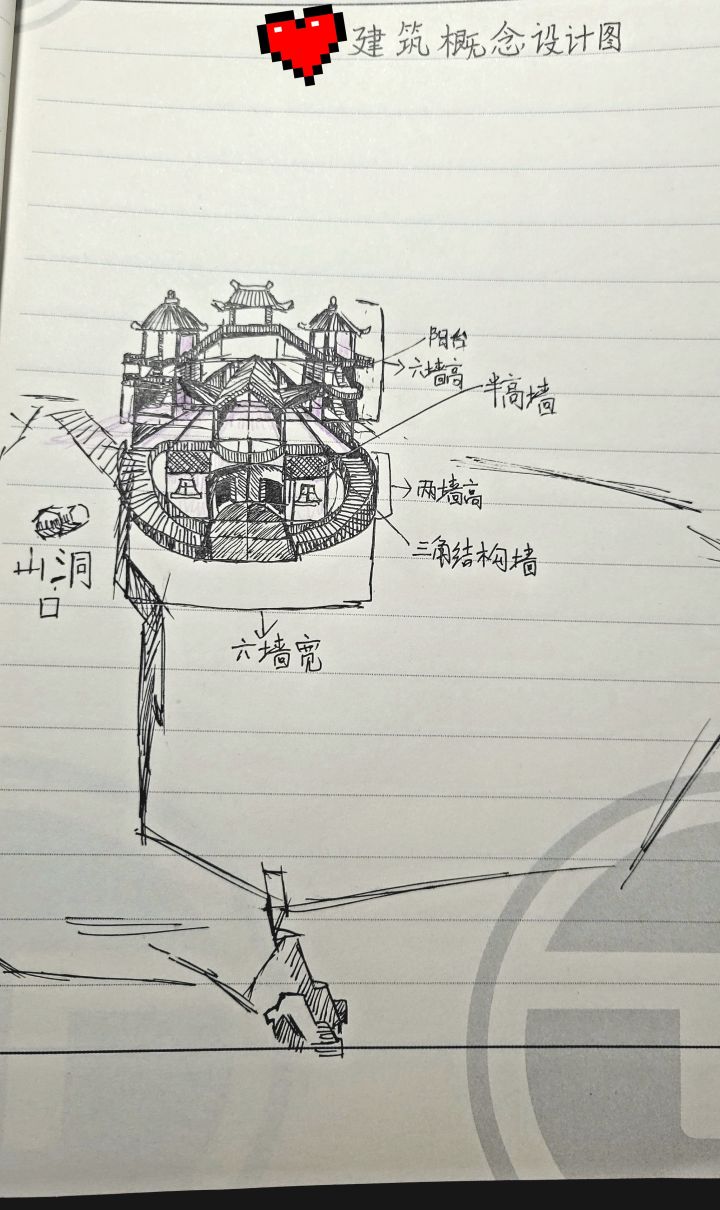 建筑概念设计图
阳台
六墙高
半高墙
两墙高
三角结构墙
山洞
口
六墙宽